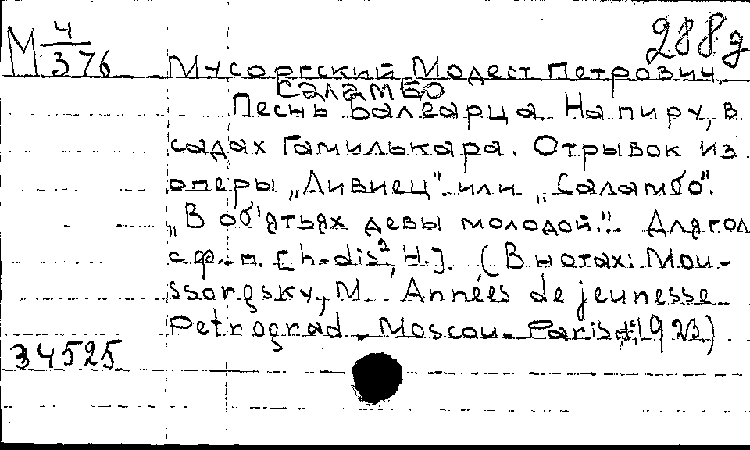 М 4/376
288д
Мусоргский Модест Петрович
Саламбо
Песнь балеарца. На пиру, в
садах Гамилькара. Отрывок из
оперы „Ливиец" или „Саламбо".
„В об'ятьях девы молодой..." Для гол
с ф.-п. [h-dis², H.]. (В нотах: Mou-
ssorgsky, M. Années de jeunesse
Petrograd-Moscou-Paris, 1923)
34525